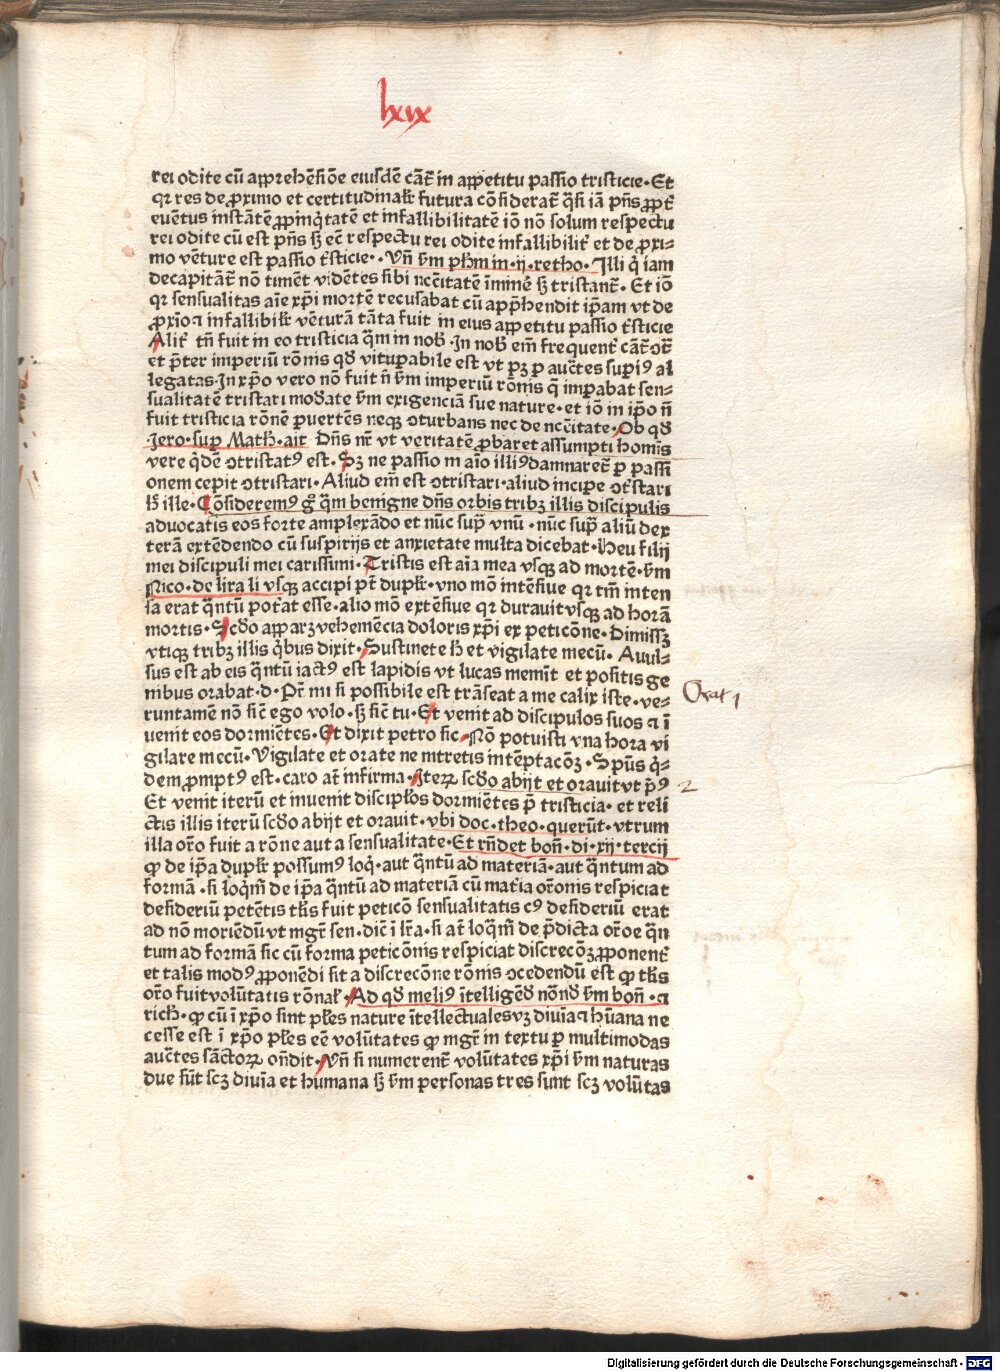 lxix
rei odite cū apprehēsiōe eiusdē cāt᷑ in appetitu passio tristicie · Et
qꝛ res de ꝓximo et certitudinalit᷑ futura cōsiderat᷑ q̄si iā p̄ns ꝓpt᷑
euētus instātē ꝓpinq̇tatē et infallibilitatē iō nō solum respectu
rei odite cū est p̄ns sꝫ eē respectu rei odite infallibilit᷑ et de ꝓxi⸗
mo vēture est passio t᷑sticie · · Vn̄ ẜm ph̄m in · ij · retho · Illi q̇ iam
decapitāt᷑ nō timēt vidētes sibi nc̄citatē īminē sꝫ tristant᷑ · Et iō
qꝛ sensualitas aīe xp̄i mortē recusabat cū app̄hendit ip̄am vt de
ꝓxīo ⁊ infallibilit᷑ vēturā tāta fuit in eius appetitu passio t᷑sticie
Alit᷑ tn̄ fuit in eo tristicia q̄m in nob̄ · In nob̄ em̄ frequent᷑ cāt᷑ ↄt᷑
et p̄ter imperiū rōnis qd̄ vituꝑabile est vt pꝫ ꝑ auc̄tes supiꝰ al
legatas · In xp̄o vero nō fuit n̄ ẜm imperiū rōnis q̄ imꝑabat sen⸗
sualitatē tristari mod̄ate ẜm exigenciā sue nature · et iō in ip̄o n̄
fuit tristicia rōnē ꝑuertēs neqꝫ ↄturbans nec de nc̄citate · Ob qd̄
Jero · suꝑ Math̄ · ait Dn̄s nr̄ vt veritatē ꝓbaret assumpti homīs
vere q̇dē ↄtristatꝰ est · Sꝫ ne passio in aīo illiꝰ damnaret᷑ ꝑ passi
onem cepit ↄtristari · Aliud em̄ est ↄtristari · aliud incipe ↄt᷑stari
h̄ ille · Cōsideremꝰ gͦ q̄m benigne dn̄s orbis tribꝫ illis discipulis
aduocatis eos forte amplexādo et nūc supͣ vnū · nūc supͣ aliū dex
terā extēdendo cū suspirijs et anxietate multa dicebat · Heu filij
mei discipuli mei carissimi · Tristis est aīa mea vsqꝫ ad mortē · ẜm
Nico · de lira li vsqꝫ accipi pt̄ duplr̄ · vno mō intēsiue qꝛ tm̄ inten
sa erat q̄ntū pot᷑at esse · alio mō extēsiue qꝛ durauit vsqꝫ ad horā
mortis · Scd̄o apparꝫ vehemēcia doloris xp̄i ex peticōne · Dimissꝫ
vtiqꝫ tribꝫ illis q̇bus dixit · Sustinete h̄ et vigilate mecū · Auul⸗
sus est ab eis q̄ntū iactꝰ est lapidis vt lucas memīt et positis ge
nibus orabat · d · Pr̄ mi si possibile est trāseat a me calix iste · ve⸗
runtamē nō sic̄ ego volo · sꝫ sic̄ tu · Et venit ad discipulos suos ⁊ ī
Orat 1
uenit eos dormiētes · Et dixit petro sic · Nō potuisti vna hora vi
gilare mecū · Vigilate et orate ne intretis in tēptacōꝫ · Spūs q̇⸗
dem promptꝰ est · caro at̄ infirma · Iterꝝ scd̄o abijt et orauit vt pͥꝰ
2
Et venit iterū et inuenit discipl̄os dormiētes p̄ tristicia · et reli
ctis illis iterū scd̄o abijt et orauit · vbi doc · theo · querūt · vtrum
illa or̄o fuit a rōne aut a sensualitate · Et rn̄det bon̄ · di · xij · tercij
ꝙ de ip̄a duplr̄ possumꝰ loq̇ · aut q̄ntū ad materiā · aut q̄ntum ad
formā · si loq̄m̄ de ip̄a q̄ntū ad materiā cū mat᷑ia or̄onis respiciat
desideriū petētis tl̄is fuit peticō sensualitatis cꝰ desideriū erat
ad nō moriēdū vt mgr̄ sen · dic̄ ī lr̄a · si at̄ loq̄m̄ de p̄dicta or̄oe q̄n
tum ad formā sic cū forma peticōnis respiciat discrecōꝫ ꝓponent᷑
et talis modꝰ ꝓponēdi sit a discrecōne rōnis ↄcedendū est ꝙ tl̄is
or̄o fuit volūtatis rōnal̄ · Ad qd̄ meliꝰ ītelligēd̄ nōnd̄ ẜm bon̄ · ⁊
rich̄ · ꝙ cū ī xp̄o sint pl̄es nature ītellectuales vꝫ diuīa ⁊ hūana ne
cesse est ī xp̄o pl̄es eē volūtates ꝙ mgr̄ in textu ꝑ multimodas
auc̄tes sāctoꝝ on̄dit · Vn̄ si numerent᷑ volūtates xp̄i ẜm naturas
due sūt scꝫ diuīa et humana sꝫ ẜm personas tres sunt scꝫ volūtas
Digitalisierung gefördert durch die Deutsche Forschungsgemeinschaft - DFG